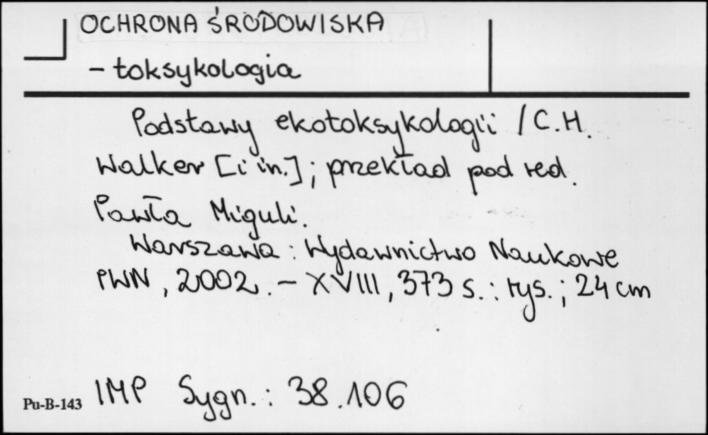 OCHRONA ŚRODOWISKA
- toksykologia
Podstawy ekotoksykologii / C.H.
Walker [i in.] ; przekład pod red.
Pawła Miguli.
Warszawa : Wydawnictwo Naukowe
PWN, 2002. - XVIII, 373 s. : rys. ; 24 cm
Pu-B-143 IMP Sygn. : 38.106